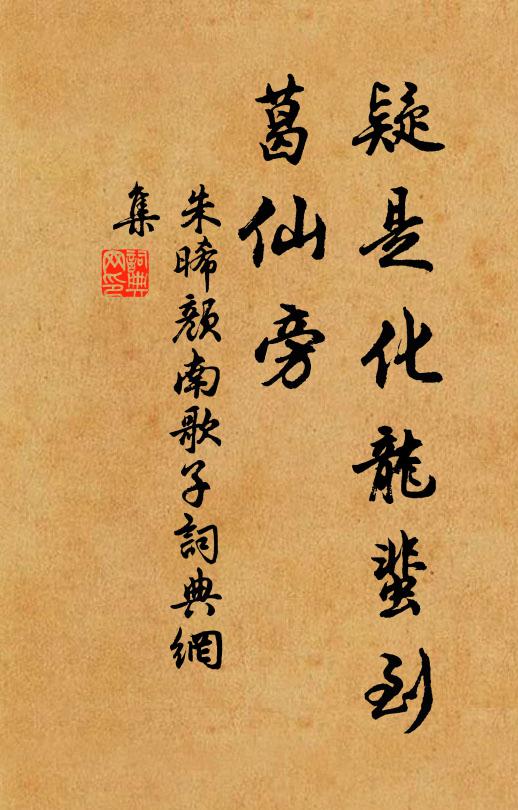 疑是化龍蜚到
葛仙旁
朱晞顏南歌子詞典網
集
詞典
网印